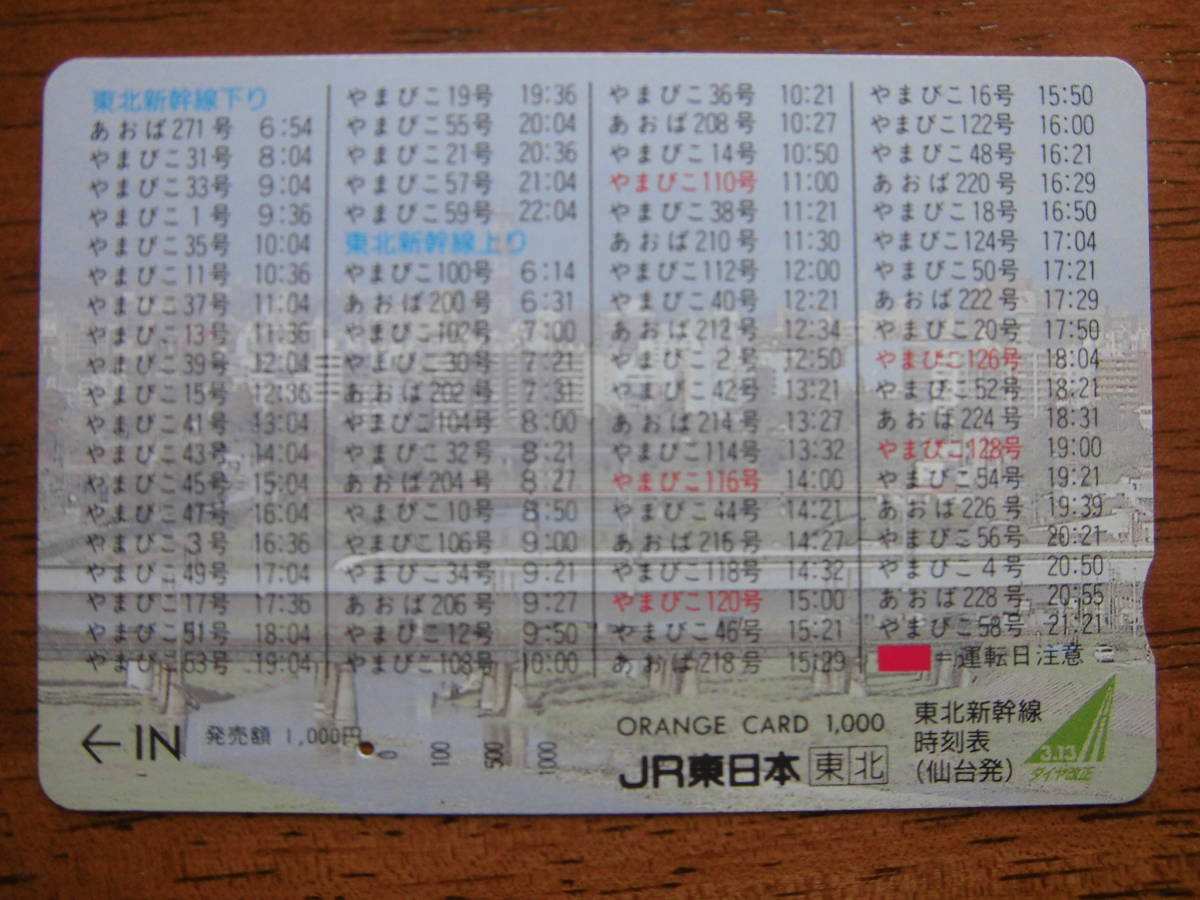 東北新幹線下り
あおば271号 6:54
やまびこ31号 8:04
やまびこ33号 9:04
やまびこ1号 9:36
やまびこ35号 10:04
やまびこ11号 10:36
やまびこ37号 11:04
やまびこ13号 11:36
やまびこ39号 12:04
やまびこ15号 12:36
やまびこ41号 13:04
やまびこ43号 14:04
やまびこ45号 15:04
やまびこ47号 16:04
やまびこ3号 16:36
やまびこ49号 17:04
やまびこ17号 17:36
やまびこ51号 18:04
やまびこ53号 19:04
やまびこ19号 19:36
やまびこ55号 20:04
やまびこ21号 20:36
やまびこ57号 21:04
やまびこ59号 22:04
東北新幹線上り
やまびこ100号 6:14
あおば200号 6:31
やまびこ102号 7:00
やまびこ30号 7:21
あおば202号 7:31
やまびこ104号 8:00
やまびこ32号 8:21
あおば204号 8:27
やまびこ10号 8:50
やまびこ106号 9:00
やまびこ34号 9:21
あおば206号 9:27
やまびこ12号 9:50
やまびこ108号 10:00
やまびこ36号 10:21
あおば208号 10:27
やまびこ14号 10:50
やまびこ110号 11:00
やまびこ38号 11:21
あおば210号 11:30
やまびこ112号 12:00
やまびこ40号 12:21
あおば212号 12:34
やまびこ2号 12:50
やまびこ42号 13:21
あおば214号 13:27
やまびこ114号 13:32
やまびこ116号 14:00
やまびこ44号 14:21
あおば216号 14:27
やまびこ118号 14:32
やまびこ120号 15:00
やまびこ46号 15:21
あおば218号 15:29
やまびこ16号 15:50
やまびこ122号 16:00
やまびこ48号 16:21
あおば220号 16:29
やまびこ18号 16:50
やまびこ124号 17:04
やまびこ50号 17:21
あおば222号 17:29
やまびこ20号 17:50
やまびこ126号 18:04
やまびこ52号 18:21
あおば224号 18:31
やまびこ128号 19:00
やまびこ54号 19:21
あおば226号 19:39
やまびこ56号 20:21
やまびこ4号 20:50
あおば228号 20:55
やまびこ58号 21:21
=運転日注意
←IN 発売額 1,000円
0 100 500 1000
ORANGE CARD 1,000
JR東日本 東北
東北新幹線
時刻表
(仙台発)
3.13
ダイヤ改正